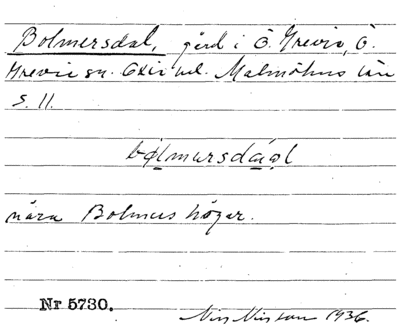 Bolmersdal, gård i Ö. Grevie, Ö.
Grevie sn. Oxie hd. Malmöhus län
s. 11.
nära Bolmers högar.
Nr 5730.
Nils Nilsson 1936.